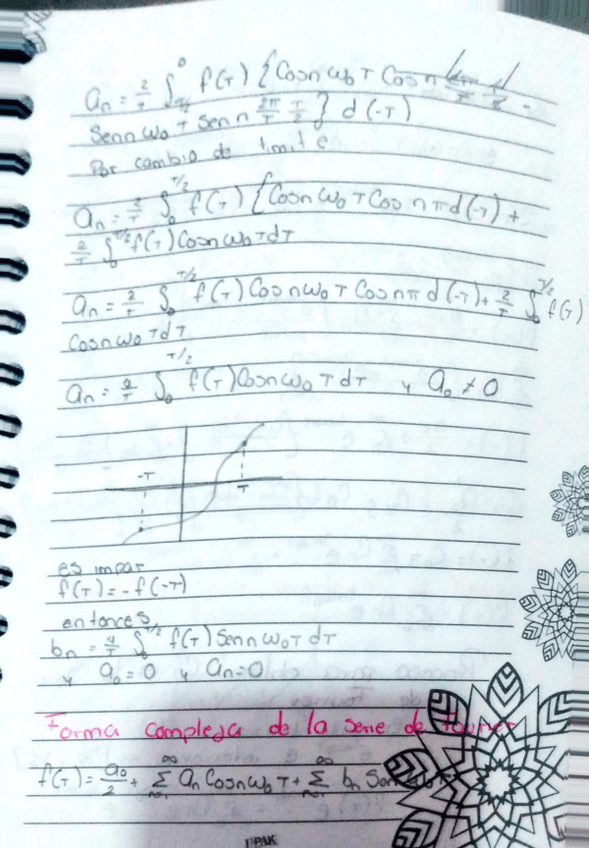 an = 2/T ∫ 0 f(T) {Cosn ω0 T Cos n
Senn ω0 T Sen n 2π/T T/2} d(-T)
Por cambio de limite
an = 2/T ∫0 T/2 f(T) {Cosn ω0 T Cos nπ d(-T) +
2/T ∫0 T/2 f(T) Cosn ω0 T dT
an = 2/T ∫0 T/2 f(T) Cosn ω0 T Cosnπ d(-T) + 2/T ∫0 T/2 f(T)
Cosn ω0 T dT
an = 4/T ∫0 T/2 f(T) Cosn ω0 T dT y a0 ≠ 0
-T
T
es impar
f(T) = -f(-T)
entonces
bn = 4/T ∫0 T/2 f(T) Senn ω0 T dT
y a0 = 0 y an = 0
Forma compleja de la serie de fourier
f(T) = a0/2 + ∞ Σ n=1 an Cosn ω0 T + ∞ Σ n=1 bn Sen